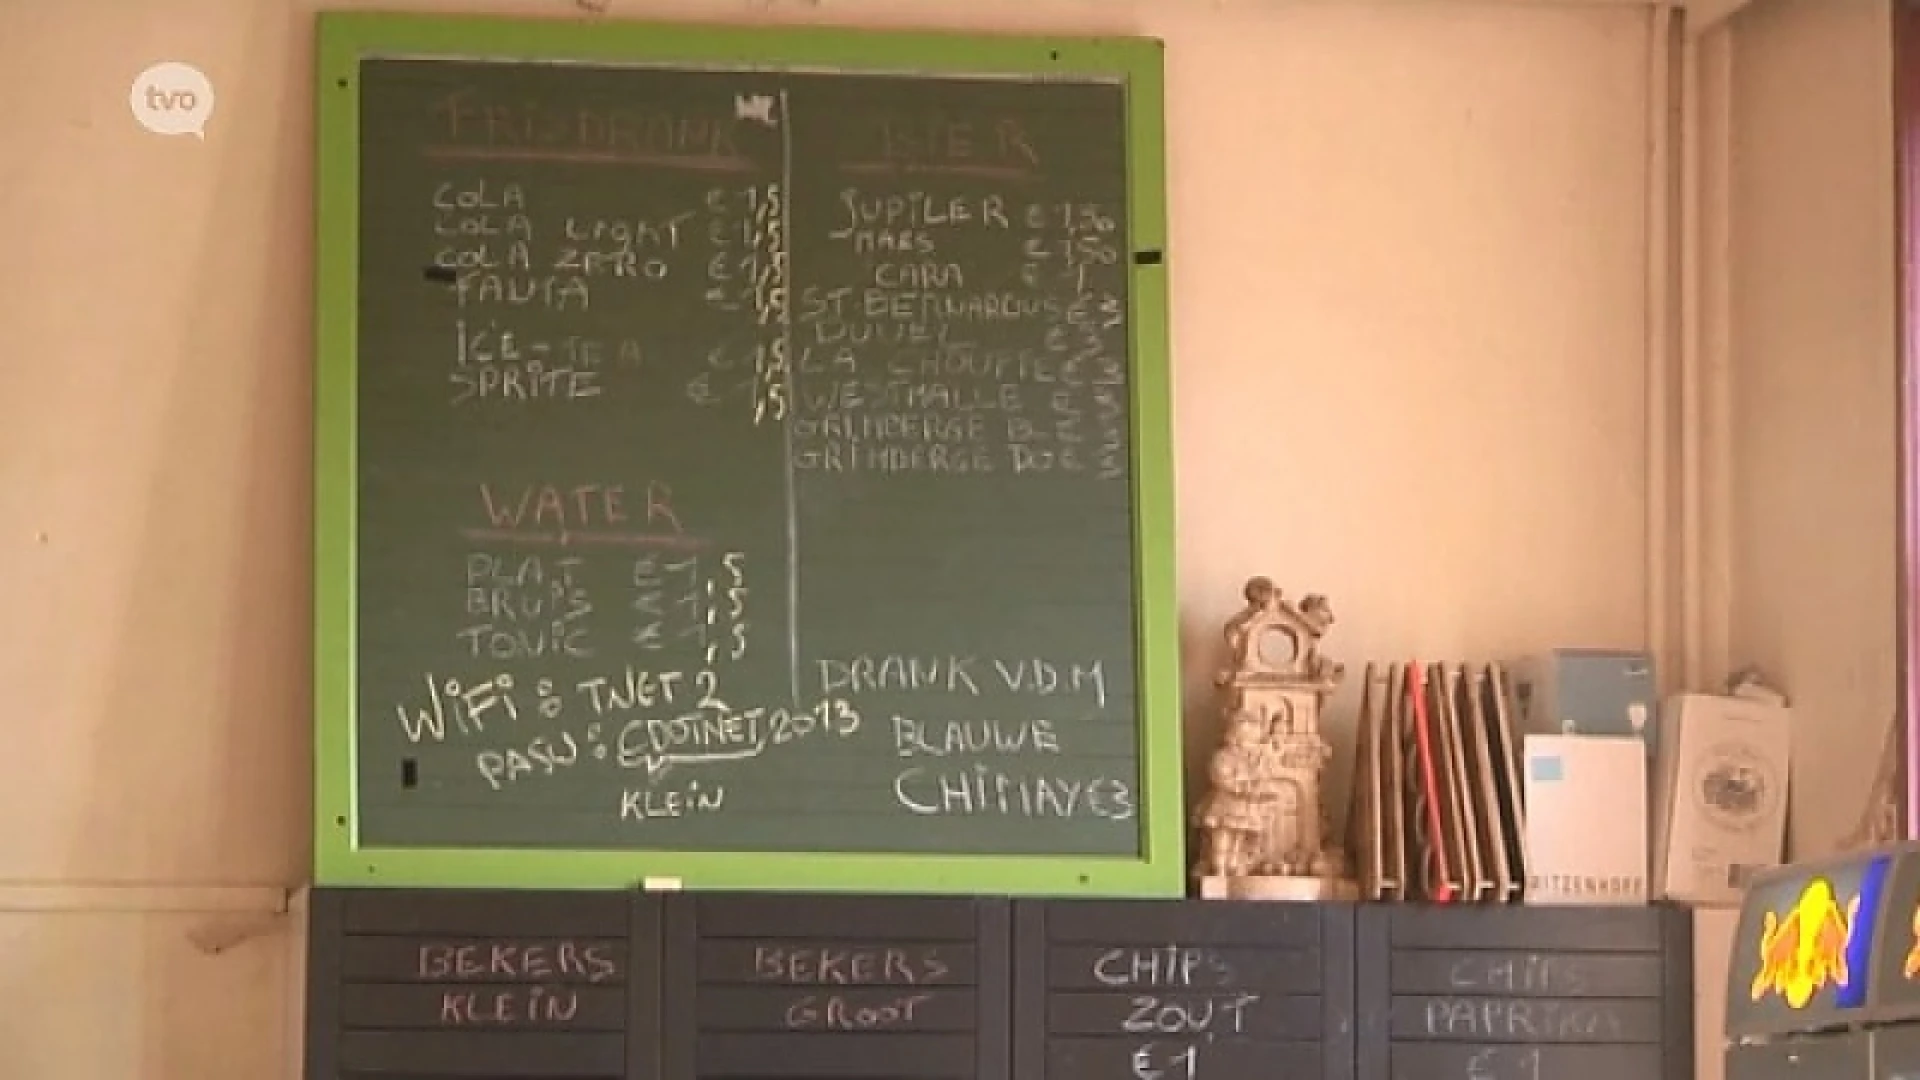 tvo
FRISDRANK
COLA € 1,5
COLA LIGHT € 1,5
COLA ZERO € 1,5
FANTA € 1,5
ICE-TEA € 1,5
SPRITE € 1,5
WATER
PLAT € 1,5
BRUIS € 1,5
TONIC € 1,5
WiFi: TNET 2
PASW: EDOTNET2013
KLEiN
BIER
JUPiLER € 1,50
MAES € 1,50
CARA € 1
ST. BERNARDUS € 3
DUVEL € 3
LA CHOUFFE € 3
WESTMALLE € 3
GRIMBERGE BL € 3
GRIMBERGE DO € 3
DRANK V.D.M
BLAUWE
CHiMAY €3
RITZENHOFF
BEKERS
KLEiN
BEKERS
GROOT
CHIPS
ZOUT
€ 1
CHIPS
PAPRIKA
€ 1